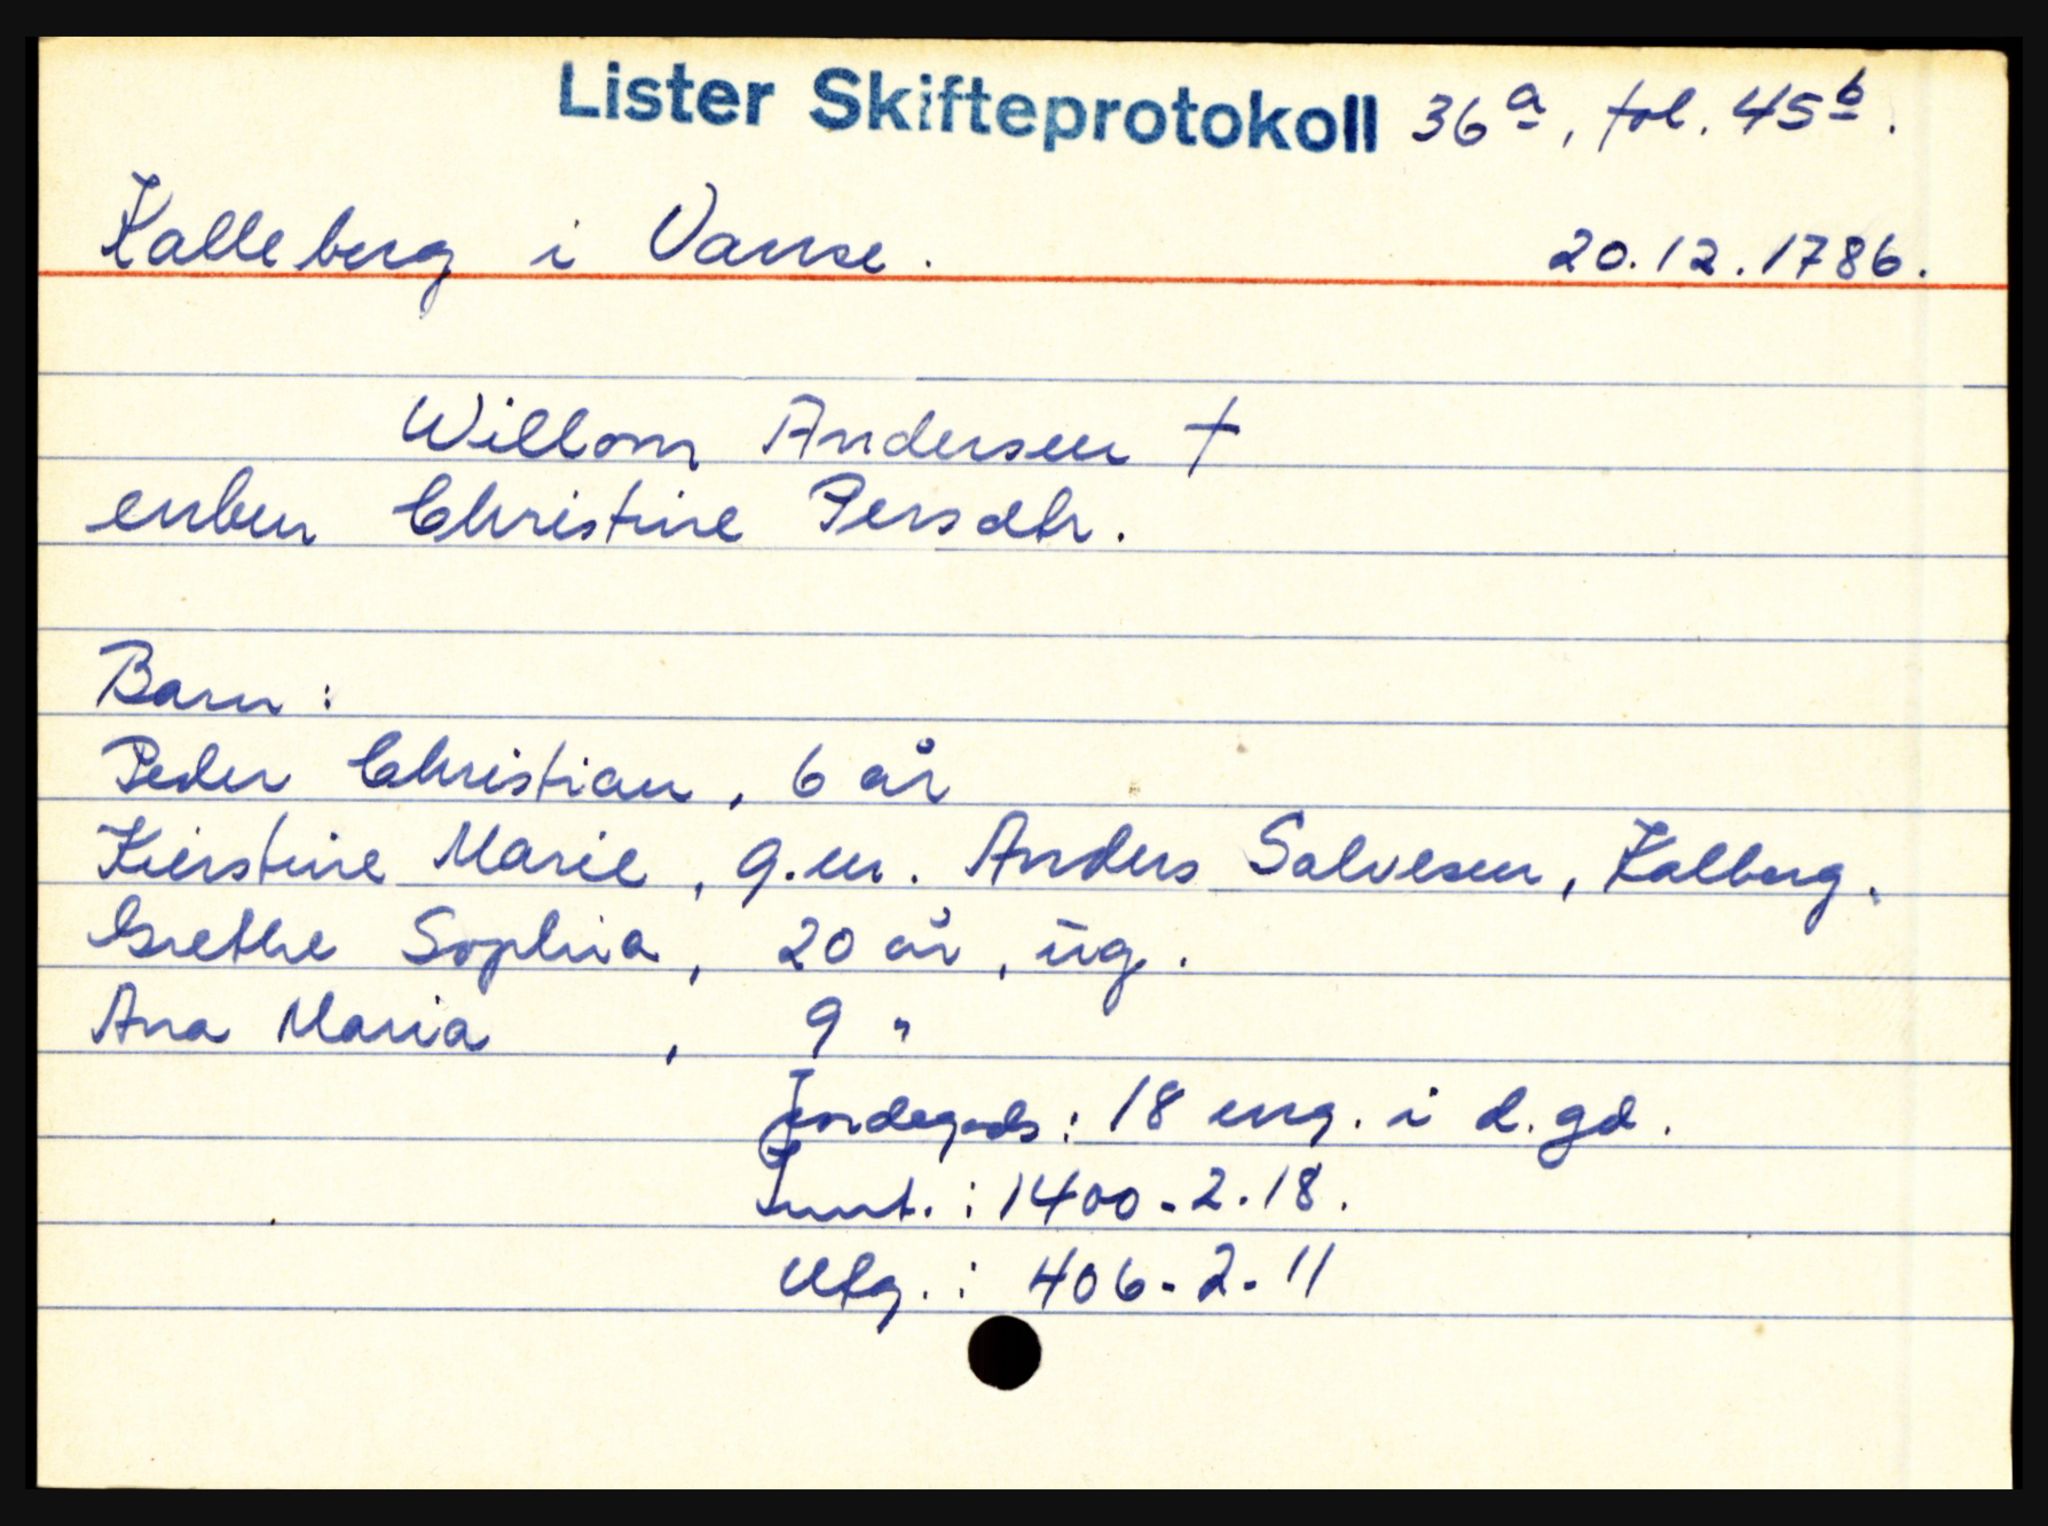 Lister Skifteprotokoll 36a, fol. 45b.
Kalleberg i Vanse. 20.12.1786.
Willom Andersen †
enken Christine Persdtr.
Barn:
Peder Christian, 6 år
Kierstine Marie, g.m. Anders Salvesen, Kalberg.
Grethe Sophia, 20 år, ug.
Ana Maria, 9 "
Jordegods: 18 eng. i d. gd.
Innt.: 1400-2.18.
Utg.: 406-2-11